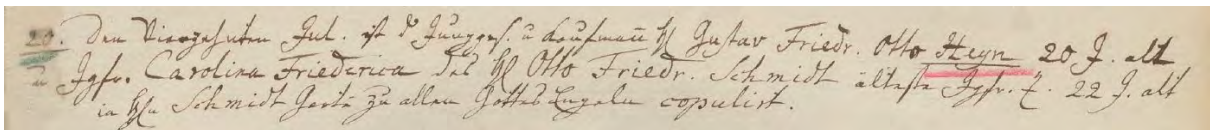 20. Den Vierzehnten Jul. ist d Junggs. u Kaufmañ H Gustav Friedr. Otto Heyn 20 J. alt
u Jgfr. Carolina Friederica des H Otto Friedr. Schmidt älteste Jgfr. T. 22 J. alt
in Hn Schmidt Garte zu allen Gottes Engeln copulirt.